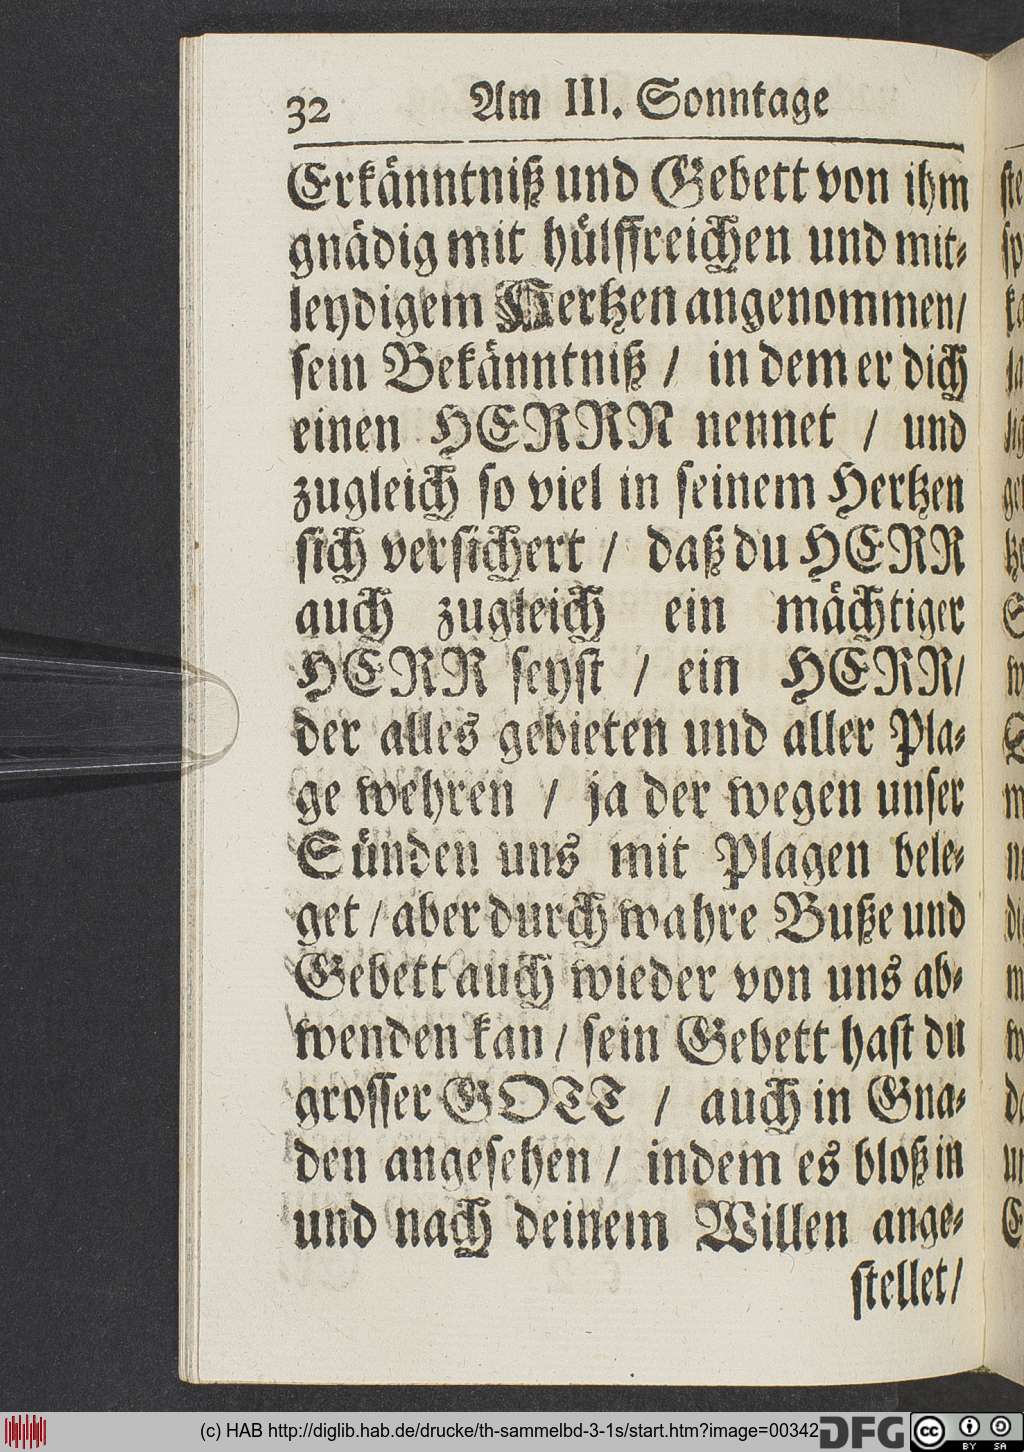 32 Am III. Sonntage
Erkänntniß und Gebett von ihm
gnädig mit hülffreichen und mit-
leydigem Hertzen angenommen/
sein Bekänntniß / in dem er dich
einen HERRN nennet / und
zugleich so viel in seinem Hertzen
sich versichert / daß du HERR
auch zugleich ein mächtiger
HERR seyst / ein HERR/
der alles gebieten und aller Pla-
ge wehren / ja der wegen unser
Sünden uns mit Plagen bele-
get / aber durch wahre Buße und
Gebett auch wieder von uns ab-
wenden kan / sein Gebett hast du
grosser GOTT / auch in Gna-
den angesehen / indem es bloß in
und nach deinem Willen ange-
stellet/
(c) HAB http://diglib.hab.de/drucke/th-sammelbd-3-1s/start.htm?image=00342
DFG
cc
BY SA